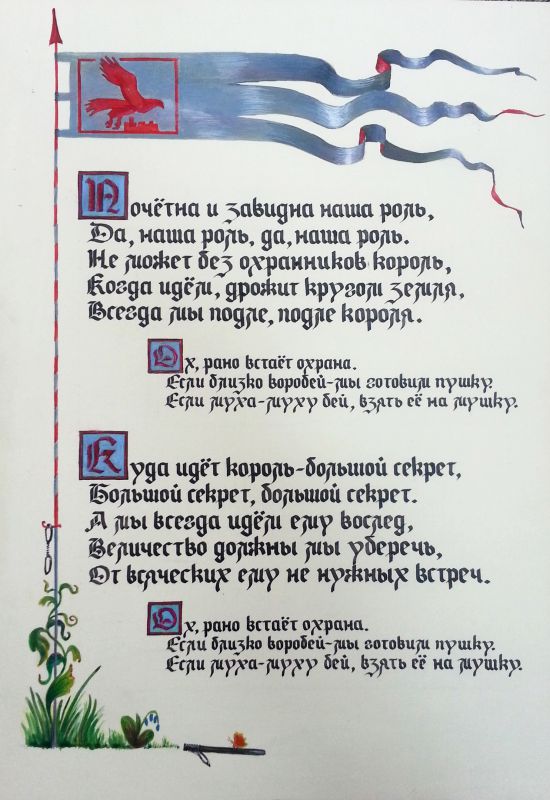 Почётна и завидна наша роль,
Да, наша роль, да, наша роль.
Не может без охранников король,
Когда идём, дрожит кругом земля,
Всегда мы подле, подле короля.
Ох, рано встаёт охрана.
Если близко воробей-мы готовим пушку.
Если муха-муху бей, взять её на мушку.
Куда идёт король-большой секрет,
Большой секрет, большой секрет.
А мы всегда идём ему вослед,
Величество должны мы уберечь,
От всяческих ему не нужных встреч.
Ох, рано встаёт охрана.
Если близко воробей-мы готовим пушку.
Если муха-муху бей, взять её на мушку.